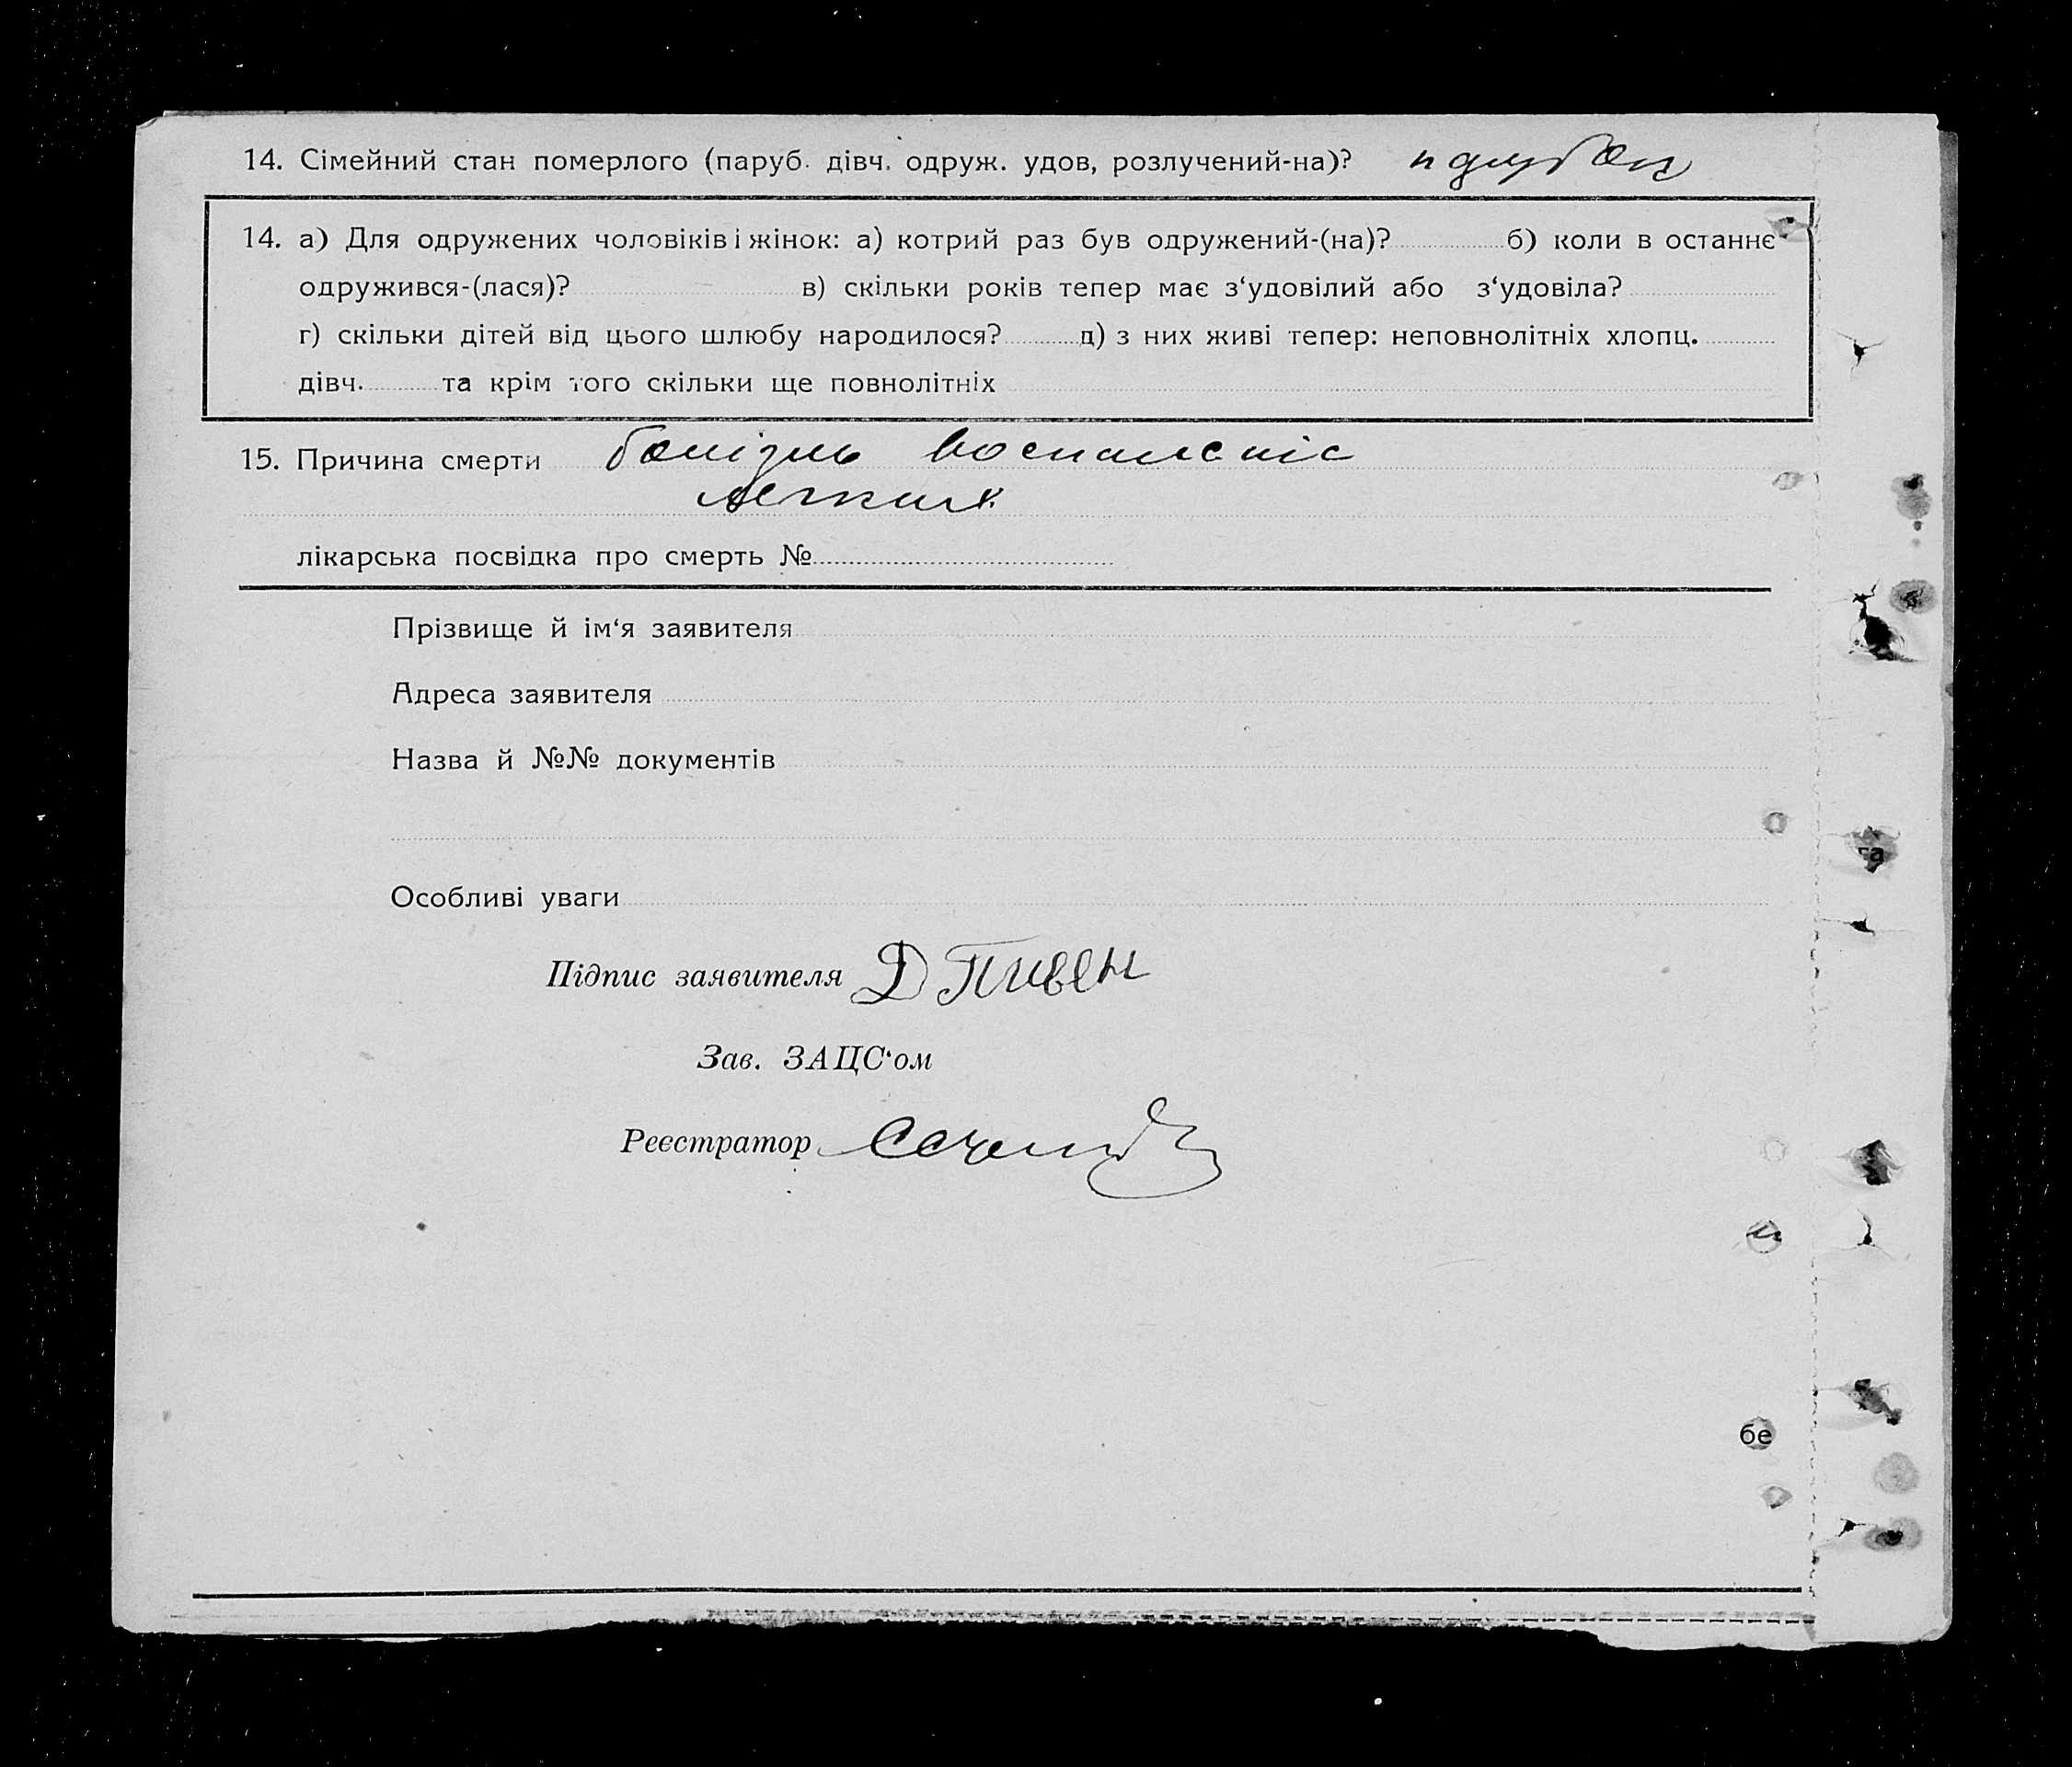 14. Сімейний стан померлого (паруб. дівч. одруж. удов, розлучений-на)? парубок
14. а) Для одружених чоловіків і жінок: а) котрий раз був одружений-(на)? б) коли в останнє
одружився-(лася)? в) скільки років тепер має з‘удовілий або з‘удовіла?
г) скільки дітей від цього шлюбу народилося? д) з них живі тепер: неповнолітніх хлопц.
дівч. та крім того скільки ще повнолітніх
15. Причина смерти болізнь воспаленіє
легких
лікарська посвідка про смерть №
Прізвище й ім‘я заявителя
Адреса заявителя
Назва й №№ документів
Особливі уваги
Підпис заявителя Д Пивен
Зав. ЗАЦС‘ом
Реєстратор
бе